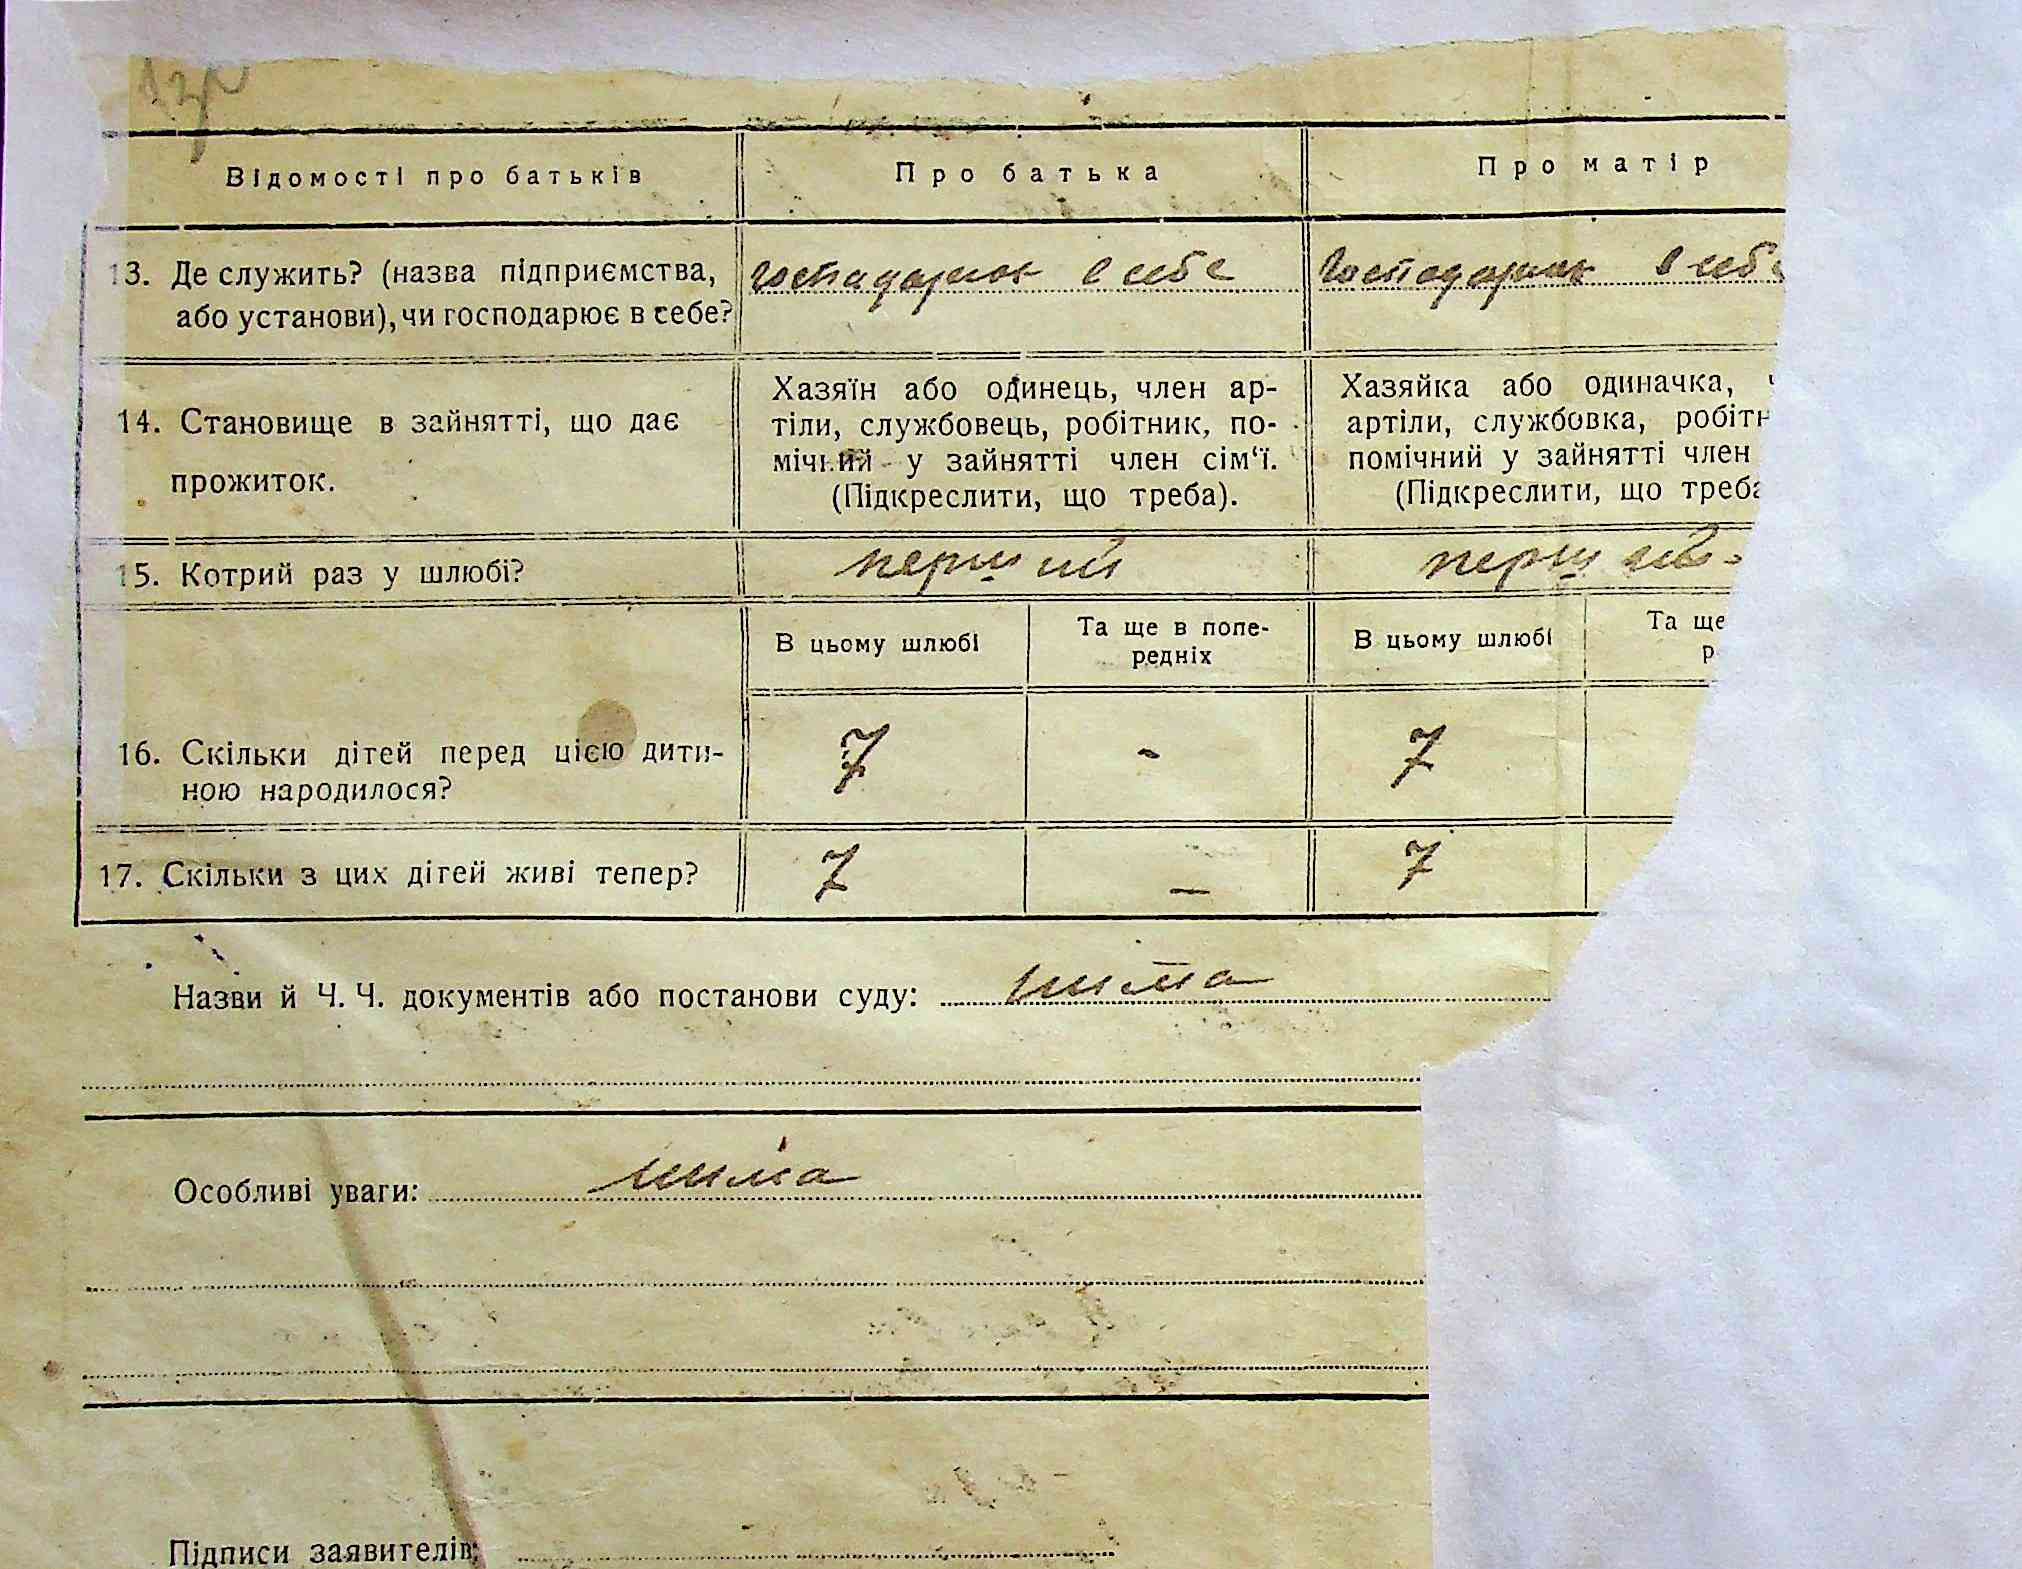 Відомості про батьків Про батька Про матір
13. Де служить? (назва підприємства, або установи), чи господарює в себе?
господарює в себе
господарює в себе
14. Становище в зайнятті, що дає прожиток.
Хазяїн або одинець, член ар-
тіли, службовець, робітник, по-
мічний у зайнятті член сім‘ї.
(Підкреслити, що треба).
Хазяйка або одиначка,
артіли, службовка, робітн
помічний у зайнятті член
(Підкреслити, що треба
15. Котрий раз у шлюбі? перший перший
В цьому шлюбі Та ще в попе-
редніх В цьому шлюбі Та ще
р
16. Скільки дітей перед цією дити-
ною народилося? 7 - 7
17. Скільки з цих дітей живі тепер? 7 — 7
Назви й Ч. Ч. документів або постанови суду: нима
Особливі уваги: нима
Підписи заявителів: